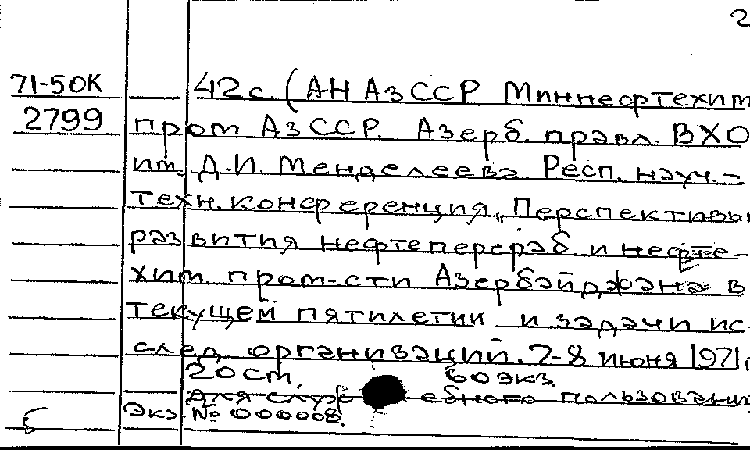 2
71-50К 42 с. (АН АзССР Миннефтехим
2799 пром АзССР. Азерб. правл. ВХО
им. Д.И. Менделеева Респ. науч.-
техн. конференция "Перспективы
развития нефтеперераб. и нефте-
хим. пром-сти Азербайджана в
текущем пятилетии и задачи ис
след. организаций. 7-8 июня 1971 г
20 см. 60 экз.
Для служебного пользования
Экз № 000008.